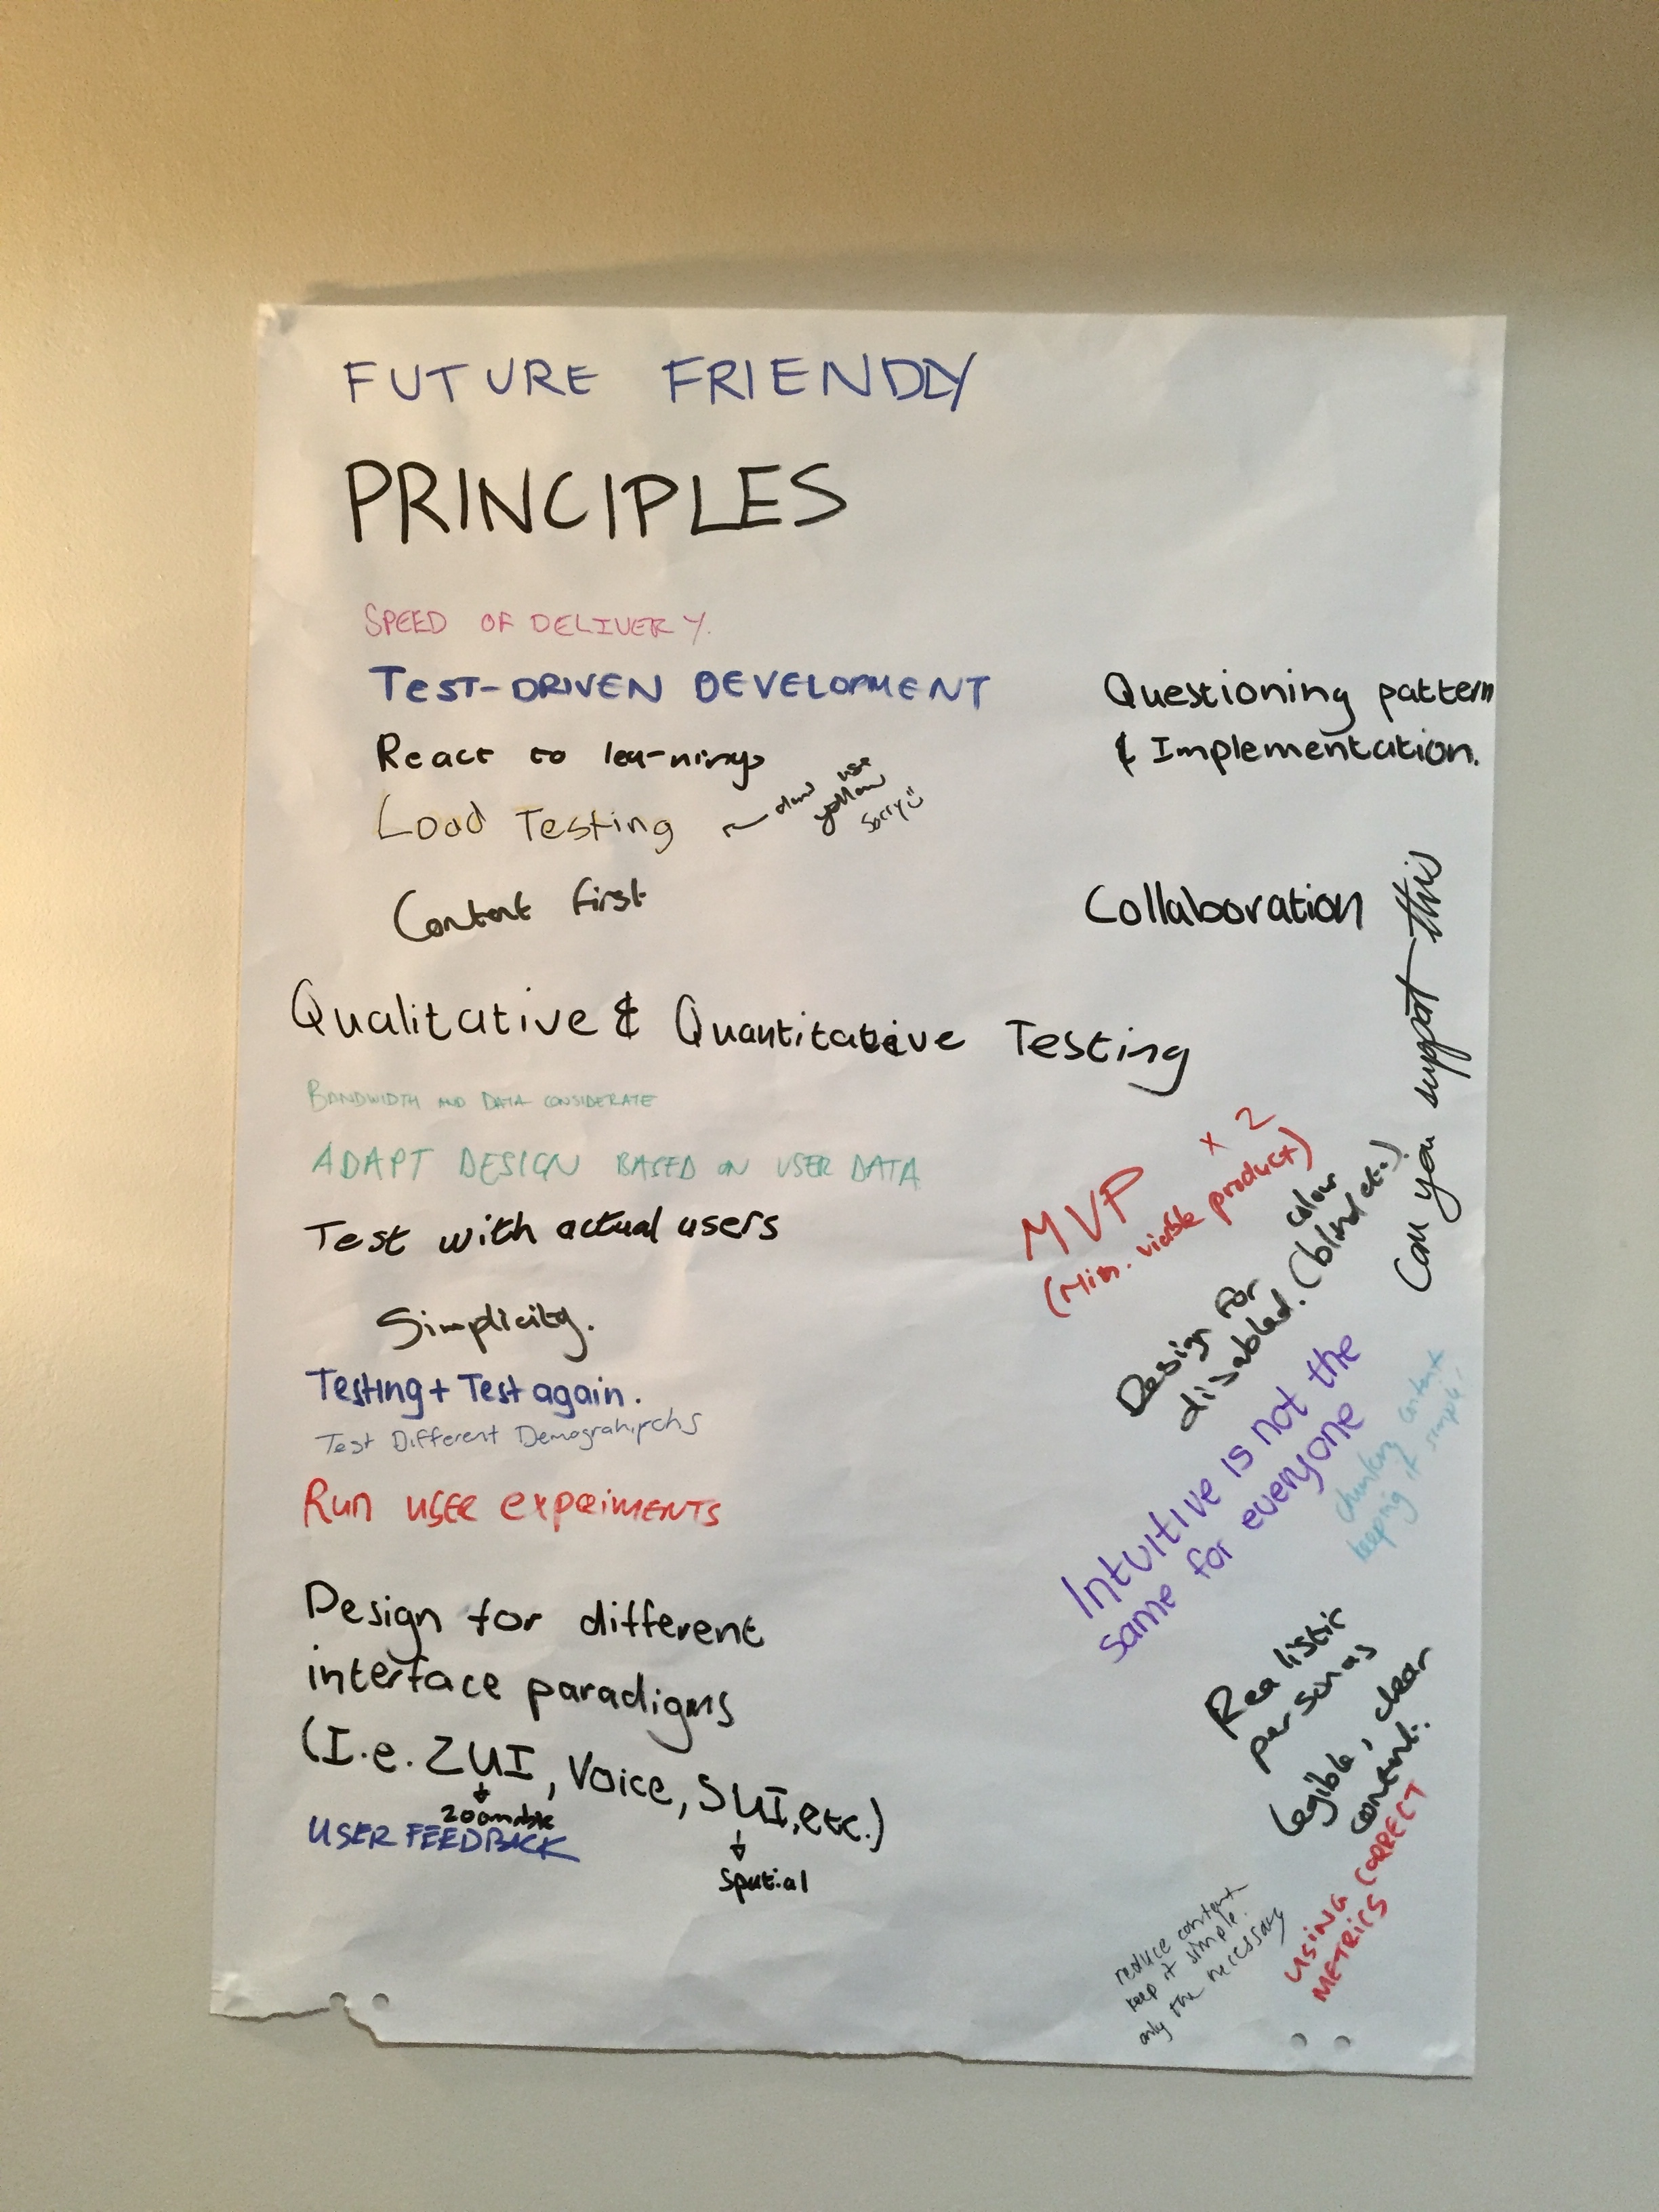 FUTURE FRIENDLY
PRINCIPLES
SPEED OF DELIVERY.
TEST-DRIVEN DEVELOPMENT
React to learnings
Load Testing
use
yellow
sorry
Content first
Qualitative & Quantitative Testing
BANDWIDTH AND DATA CONSIDERATE
ADAPT DESIGN BASED ON USER DATA
Test with actual users
Simplicity.
Testing + Test again.
Test Different Demograhipchs
RUN USER EXPERIMENTS
Design for different
interface paradigms
(I.e. ZUI, Voice, SUI, etc.)
zoomable
Spatial
USER FEEDBACK
Questioning pattern
& Implementation.
Collaboration
Can you support this
MVP x 2
(Min. viable product)
Design for
disabled. (colour
blind etc.)
Intuitive is not the
same for everyone
chunking content
keeping it simple.
Realistic
personas
Legible, clear
content.
USING CORRECT
METRICS
reduce content
keep it simple.
only the necessary